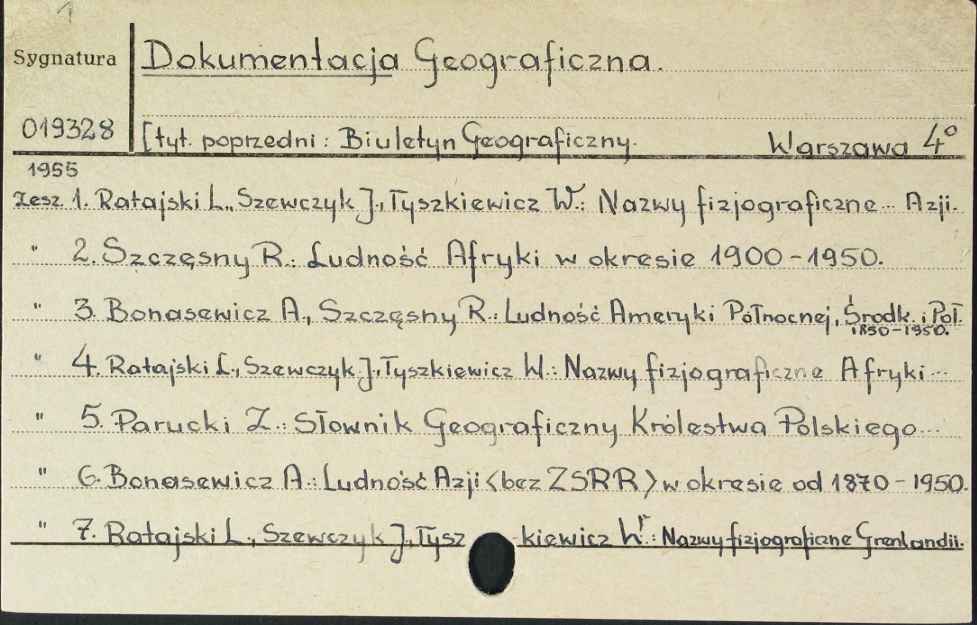 1
Sygnatura Dokumentacja Geograficzna.
019328 [tyt. poprzedni: Biuletyn Geograficzny. Warszawa 4°
1955
Zesz. 1. Ratajski L., Szewczyk J., Tyszkiewicz W.: Nazwy fizjograficzne... Azji.
" 2. Szczęsny R.: Ludność Afryki w okresie 1900-1950.
" 3. Bonasewicz A., Szczęsny R.: Ludność Ameryki Północnej, Środk. i Poł.
1850-1950.
" 4. Ratajski L., Szewczyk J., Tyszkiewicz W.: Nazwy fizjograficzne Afryki...
" 5. Parucki Z.: Słownik Geograficzny Królestwa Polskiego...
" 6. Bonasewicz A.: Ludność Azji <bez ZSRR> w okresie od 1870-1950.
" 7. Ratajski L., Szewczyk J., Tyszkiewicz W.: Nazwy fizjograficzne Grenlandii.